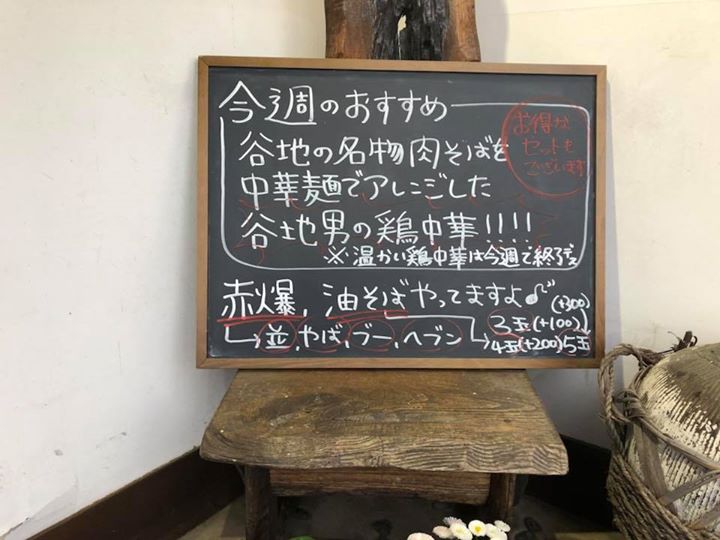 今週のおすすめ
お得な
セットも
ございます
谷地の名物肉そばを
中華麺でアレンジした
谷地男の鶏中華!!!!
※温かい鶏中華は今週で終了です
赤爆,油そばやってますよ♪
(+300)
→並,やば,ブー,ヘブン
→3玉(+100)
4玉(+200)5玉